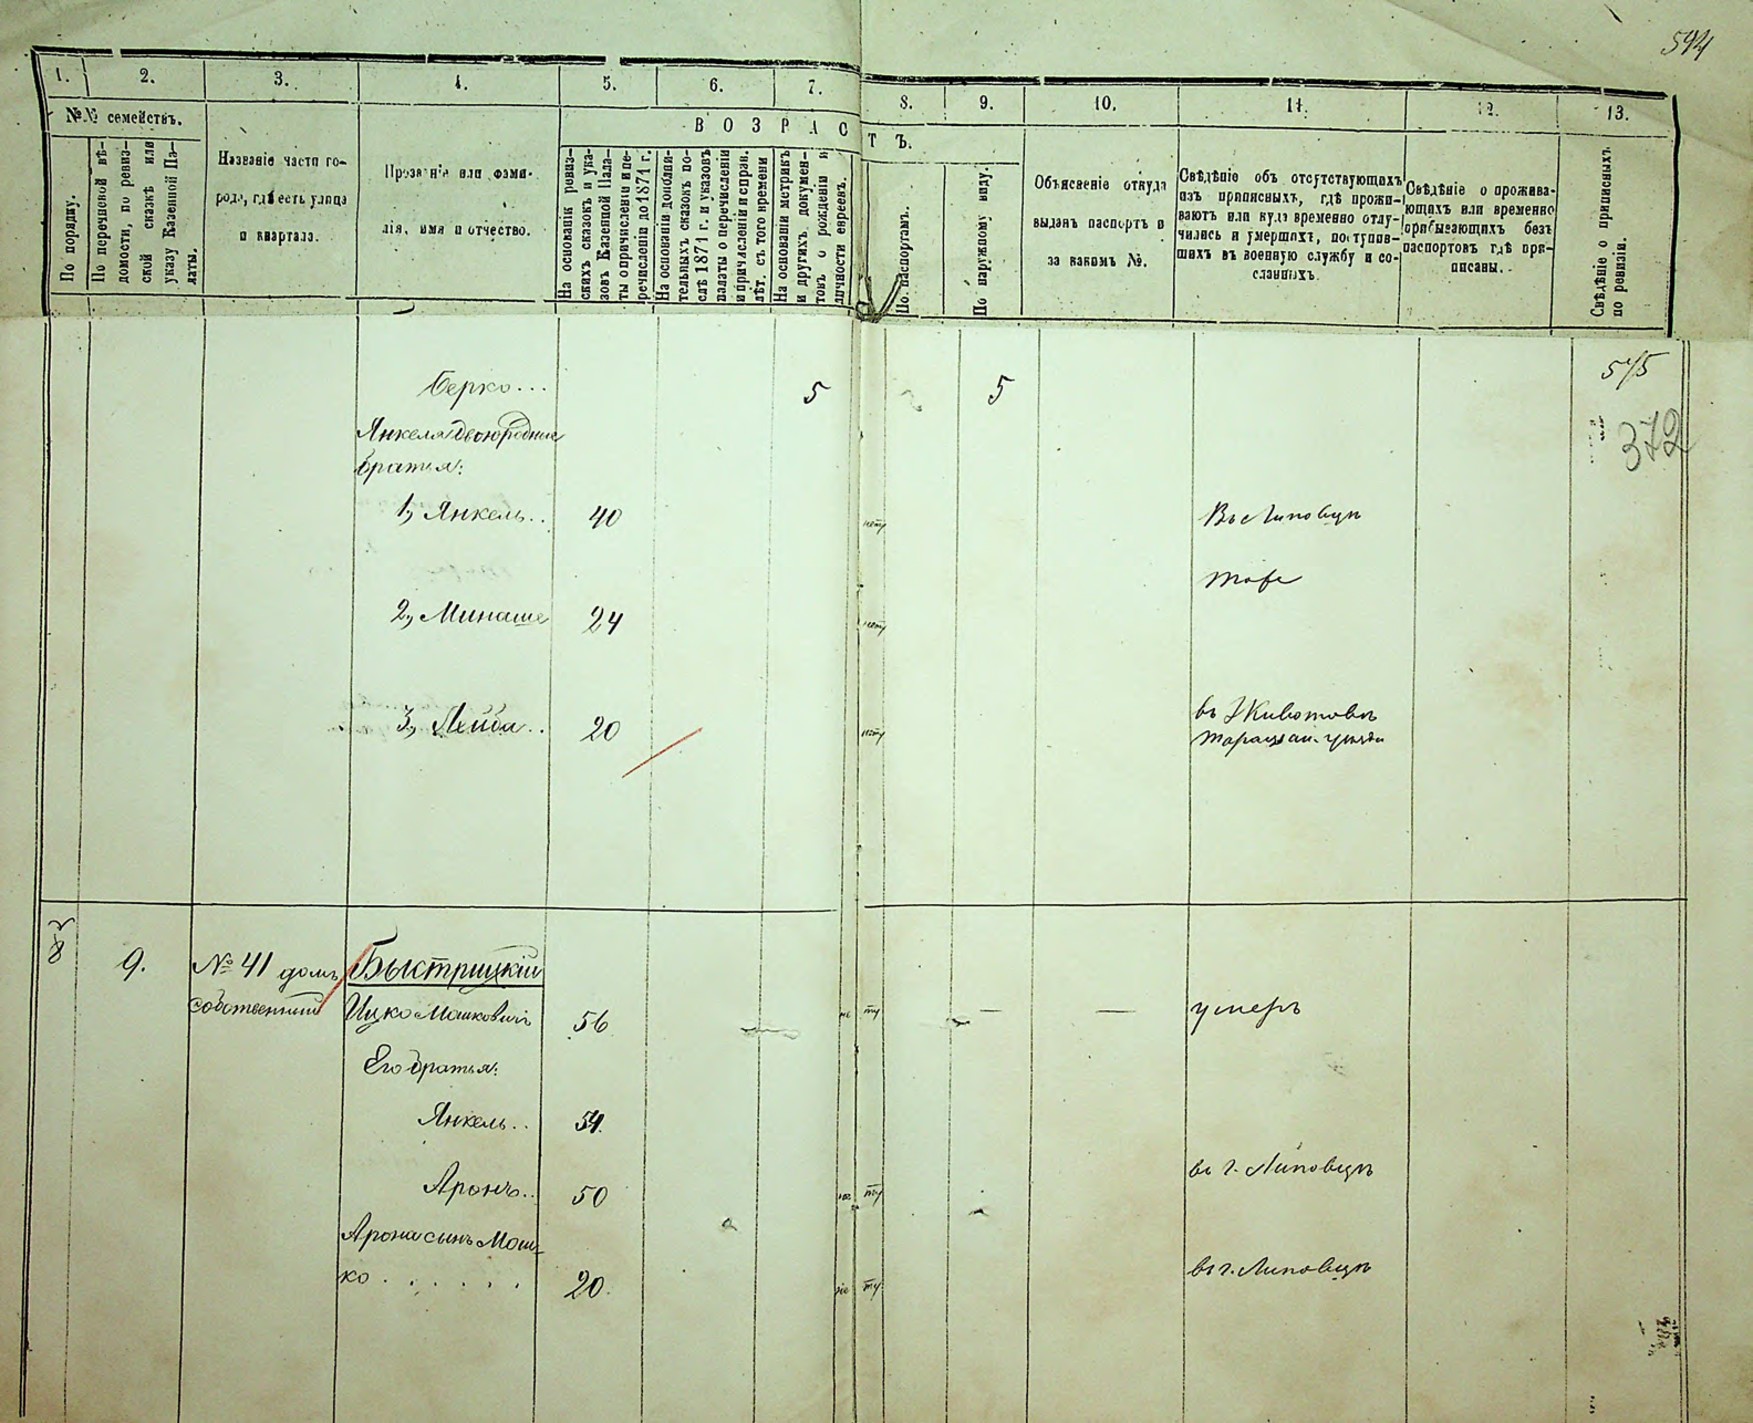 594
1. 2. 3. 4. 5. 6. 7. 8. 9. 10. 11. 12. 13.
№№ семействъ.
По порядку.
По перечневой вѣ-
домости, по ревиз-
ской сказкѣ или
указу Казенной Па-
латы.
Названіе части го-
рода, гдѣ есть улица
и квартала.
Прозваніе или фами-
лія, имя и отчество.
ВОЗРАСТЪ.
На основаніи ревиз-
скихъ сказокъ и ука-
зовъ Казенной Пала-
ты о причисленіи и пе-
речисленіи до 1871 г.
На основаніи дополни-
тельныхъ сказокъ по-
слѣ 1871 г. и указовъ
палаты о перечисленіи
и причисленіи и справ.
лѣт. съ того времени
На основаніи метрикъ
и другихъ докумен-
товъ о рожденіи и
личности евреевъ.
По паспортамъ.
По наружному виду.
Объясненіе откуда
выданъ паспортъ и
за какимъ №.
Свѣдѣніе объ отсутствующихъ
изъ приписныхъ, гдѣ прожи-
ваютъ или куда временно отлу-
чились и умершихъ, поступив-
шихъ въ военную службу и со-
сланныхъ.
Свѣдѣніе о прожива-
ющихъ или временно
прибывающихъ безъ
паспортовъ гдѣ при-
писаны.
Свѣдѣніе о приписныхъ
по ревизіи.
Берко... 5 5
372
Янкеля двоюродные
братья:
1, Янкель.. 40 нету Въ Липовцѣ
тоже
2, Минаше 24 нету
3, Лейба.. 20 нету въ Животовѣ
Таращан. уѣзда
82 9. № 41 домъ Быстрицкій
собственный Ицко Мошковичъ 56 не ту — — умеръ
Его братья:
Янкель.. 54.
въ г. Липовцѣ
Аронъ.. 50 не ту
Арона сынъ Мош-
ко . . . . . . 20. не ту въ г. Липовцѣ